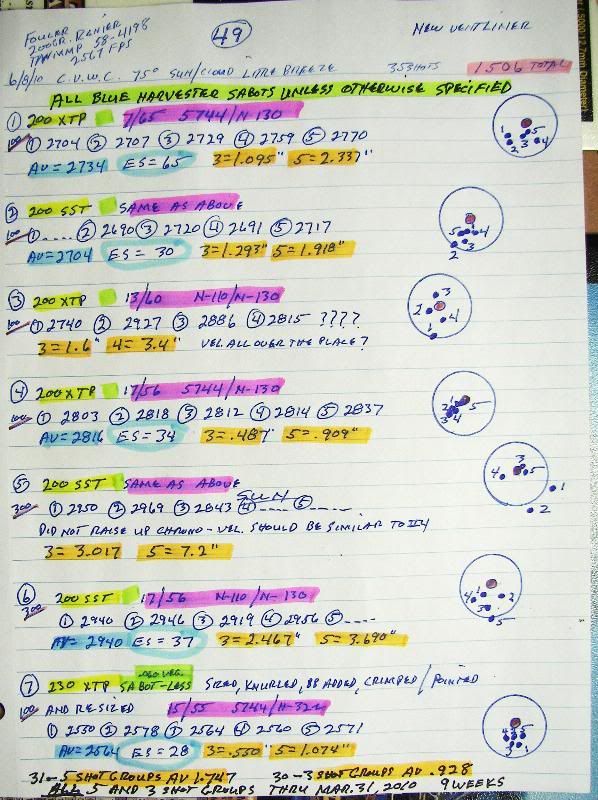 FOWLER
200GR. RAINIER
58-4198
2567 FPS
49
NEW VENTLINER
6/8/10 C.V.W.C. 75° SUN/CLOUD LITTLE BREEZE 35 SHOTS 1506 TOTAL
ALL BLUE HARVESTER SABOTS UNLESS OTHERWISE SPECIFIED
① 200 XTP 7/65 5744/N-130
100 ① 2704 ② 2707 ③ 2729 ④ 2759 ⑤ 2770
AV=2734 ES=65 3=1.095" 5=2.337"
② 200 SST SAME AS ABOVE
100 ① ..... ② 2690 ③ 2720 ④ 2691 ⑤ 2717
AV=2704 ES=30 3=1.293" 5=1.918"
③ 200 XTP 13/60 N-110/N-130
100 ① 2740 ② 2927 ③ 2886 ④ 2815 ????
3=1.6" 4=3.4" VEL. ALL OVER THE PLACE?
④ 200 XTP 17/56 5744/N-130
100 ① 2803 ② 2818 ③ 2812 ④ 2814 ⑤ 2837
AV=2816 ES=34 3=.487" 5=.909"
⑤ 200 SST SAME AS ABOVE
SUN
300 ① 2950 ② 2969 ③ 2843 ④ ..... ⑤ .....
DID NOT RAISE UP CHRONO - VEL. SHOULD BE SIMILAR TO #4
3=3.017 5=7.2"
⑥ 200 SST 17/56 N-110/N-130
300 ① 2940 ② 2946 ③ 2919 ④ 2956 ⑤ ----
AV=2940 ES=37 3=2.467" 5=3.690"
.060 VEG.
⑦ 230 XTP SABOT-LESS SIZED, KNURLED, BB ADDED, CRIMPED/POINTED
100 AND RESIZED 15/55 5744/H-322
① 2550 ② 2578 ③ 2564 ④ 2560 ⑤ 2571
AV=2564 ES=28 3=.550" 5=1.074"
31-5 SHOT GROUPS AV 1.747 30-3 SHOT GROUPS AV .928
ALL 5 AND 3 SHOT GROUPS THRU MAR. 31, 2010 9 WEEKS